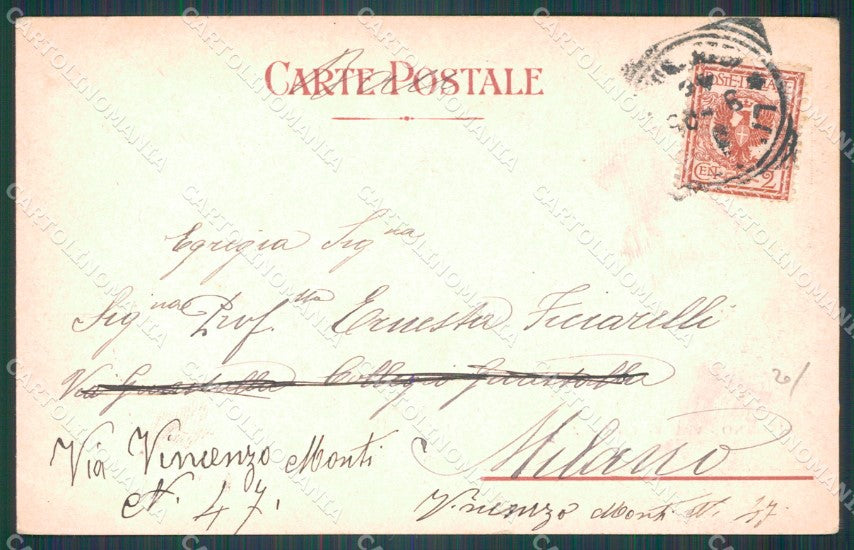 CARTE POSTALE
POSTE ITALIANE
CEN 2
Egregia Sig.na
Sig.na Prof.tta Ernesta Ficiarelli
Via Guastalla Collegio Guastalla
Via Vincenzo Monti
N. 47.
Milano
Vincenzo Monti N. 47.
20/
CARTOLINOMANIA